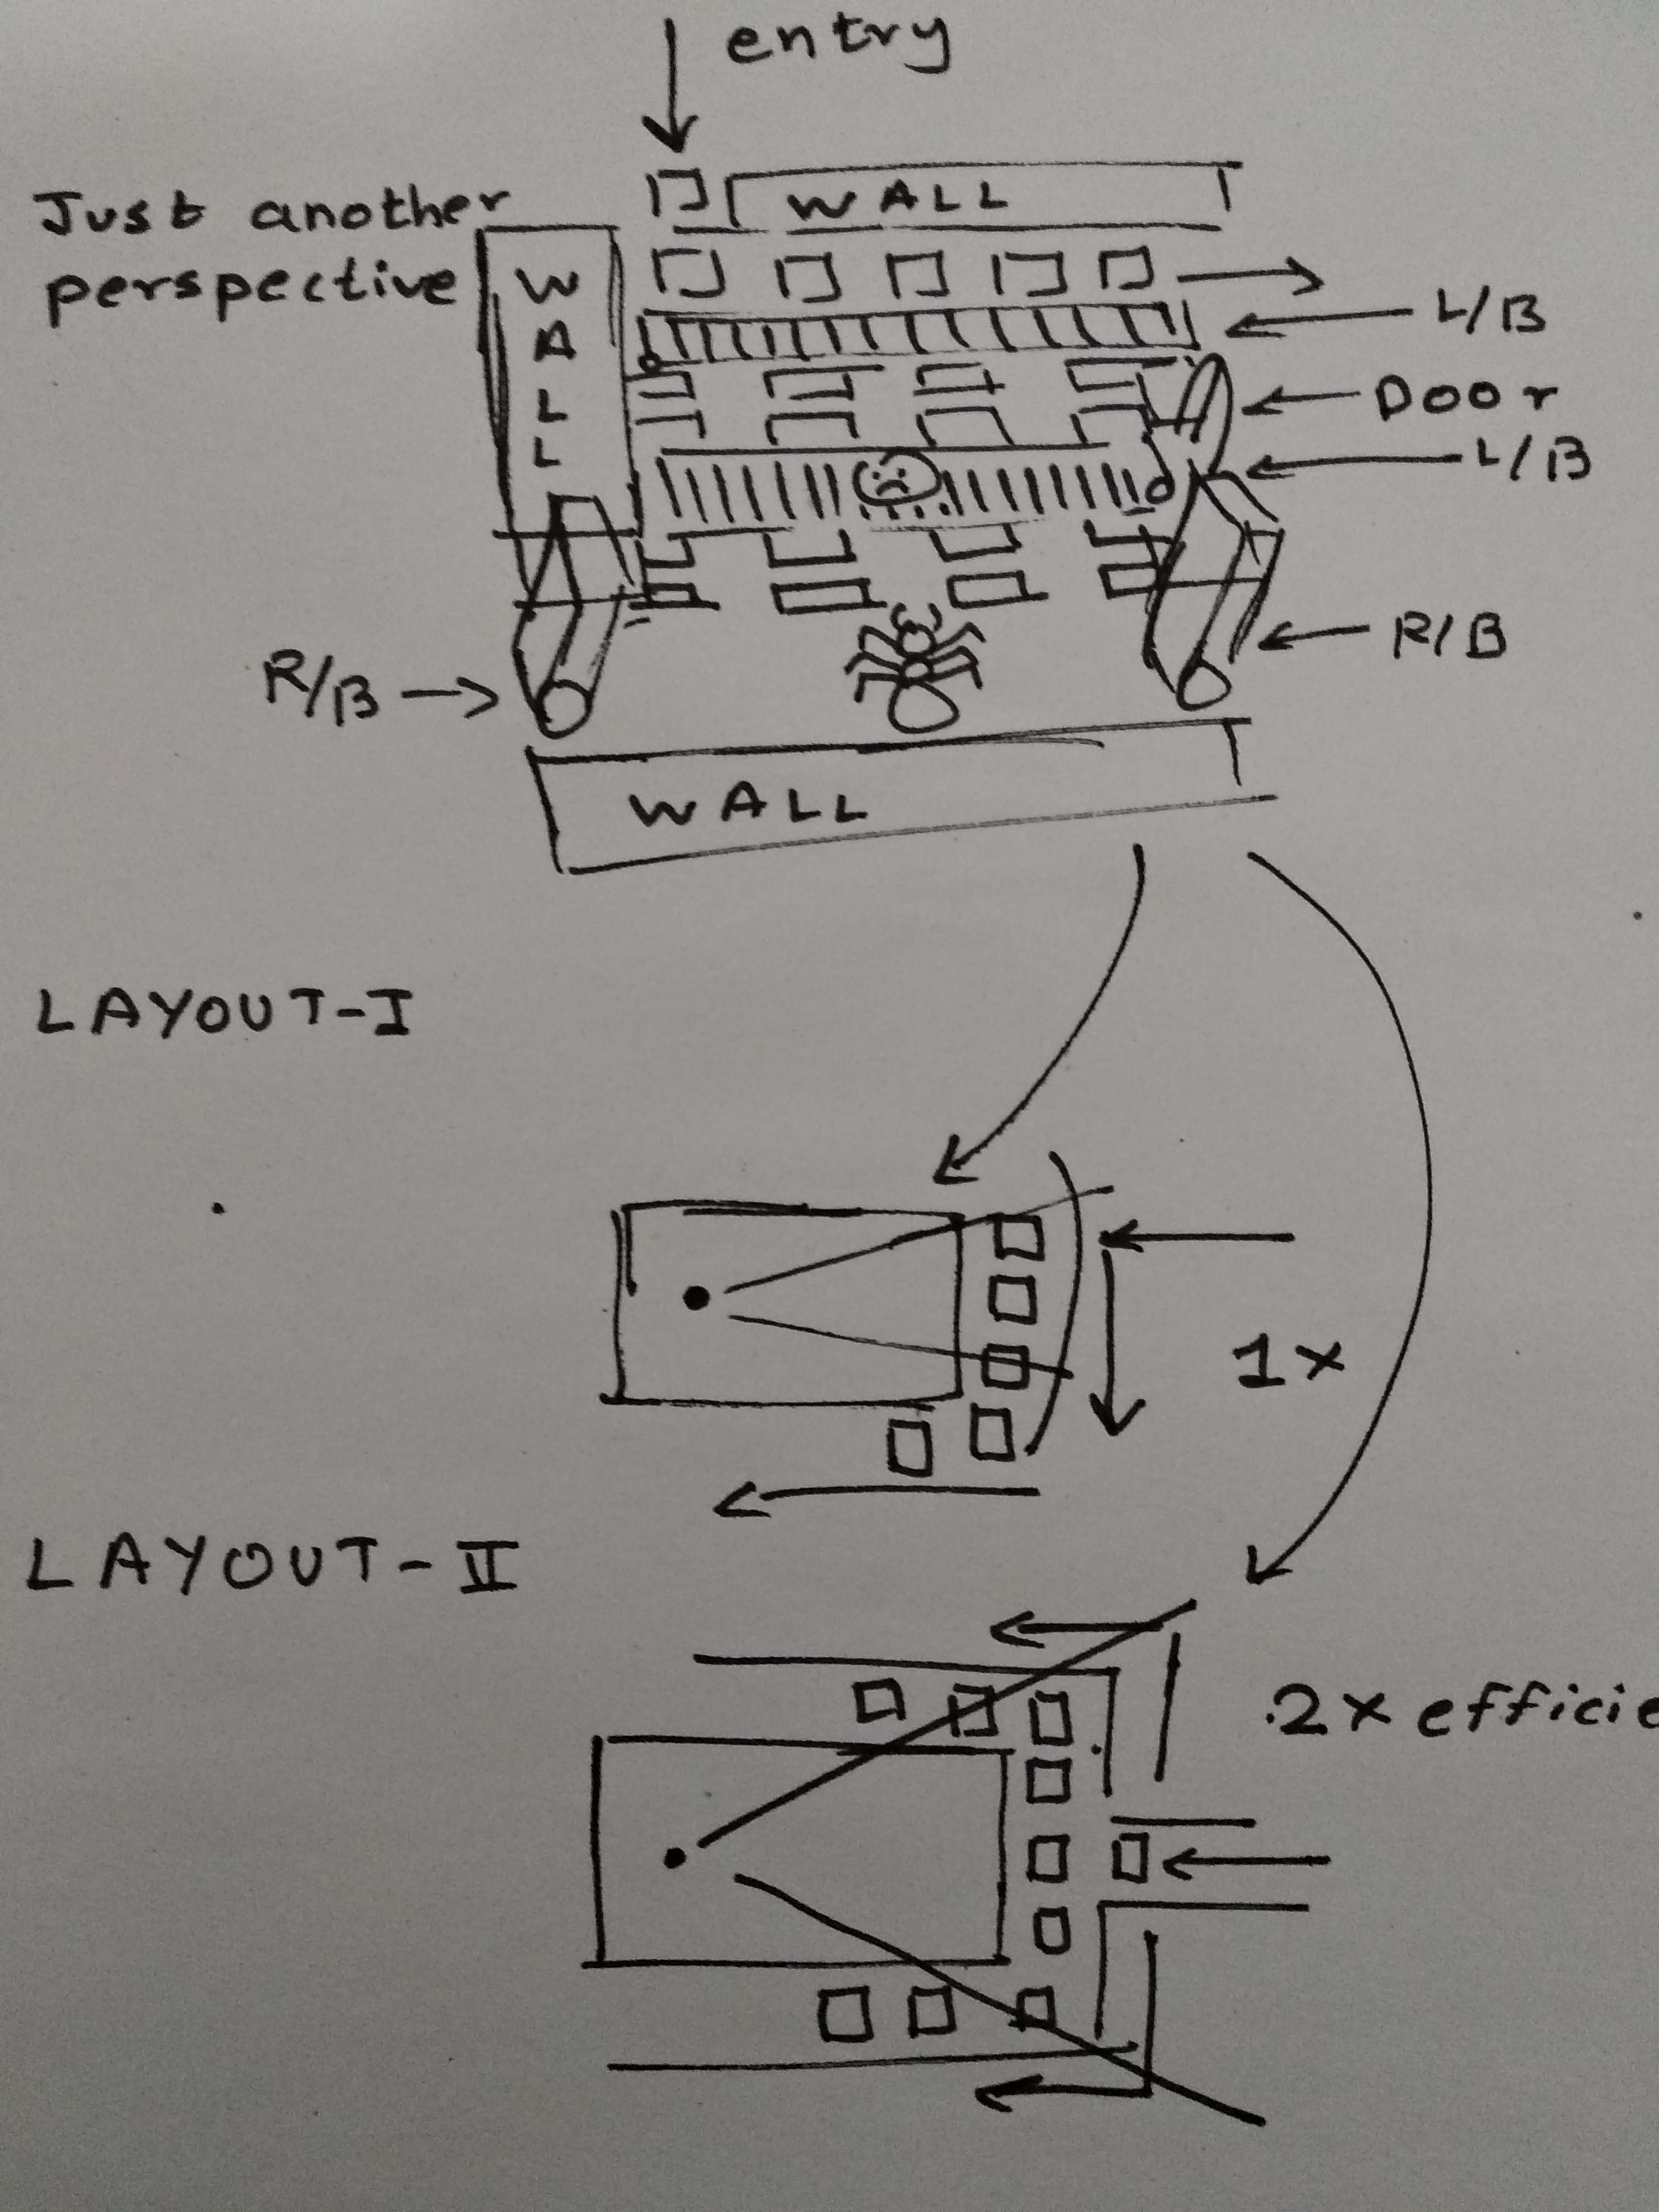 entry
Just another
perspective
WALL
WALL
L/B
Door
L/B
R/B
R/B
WALL
LAYOUT-I
1x
LAYOUT-II
2x efficie